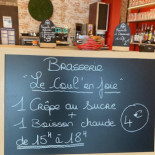 Brasserie
"Le Coul'en foie"
1 Crêpe au sucre
+
1 Boisson chaude
4€
de 15H à 18H